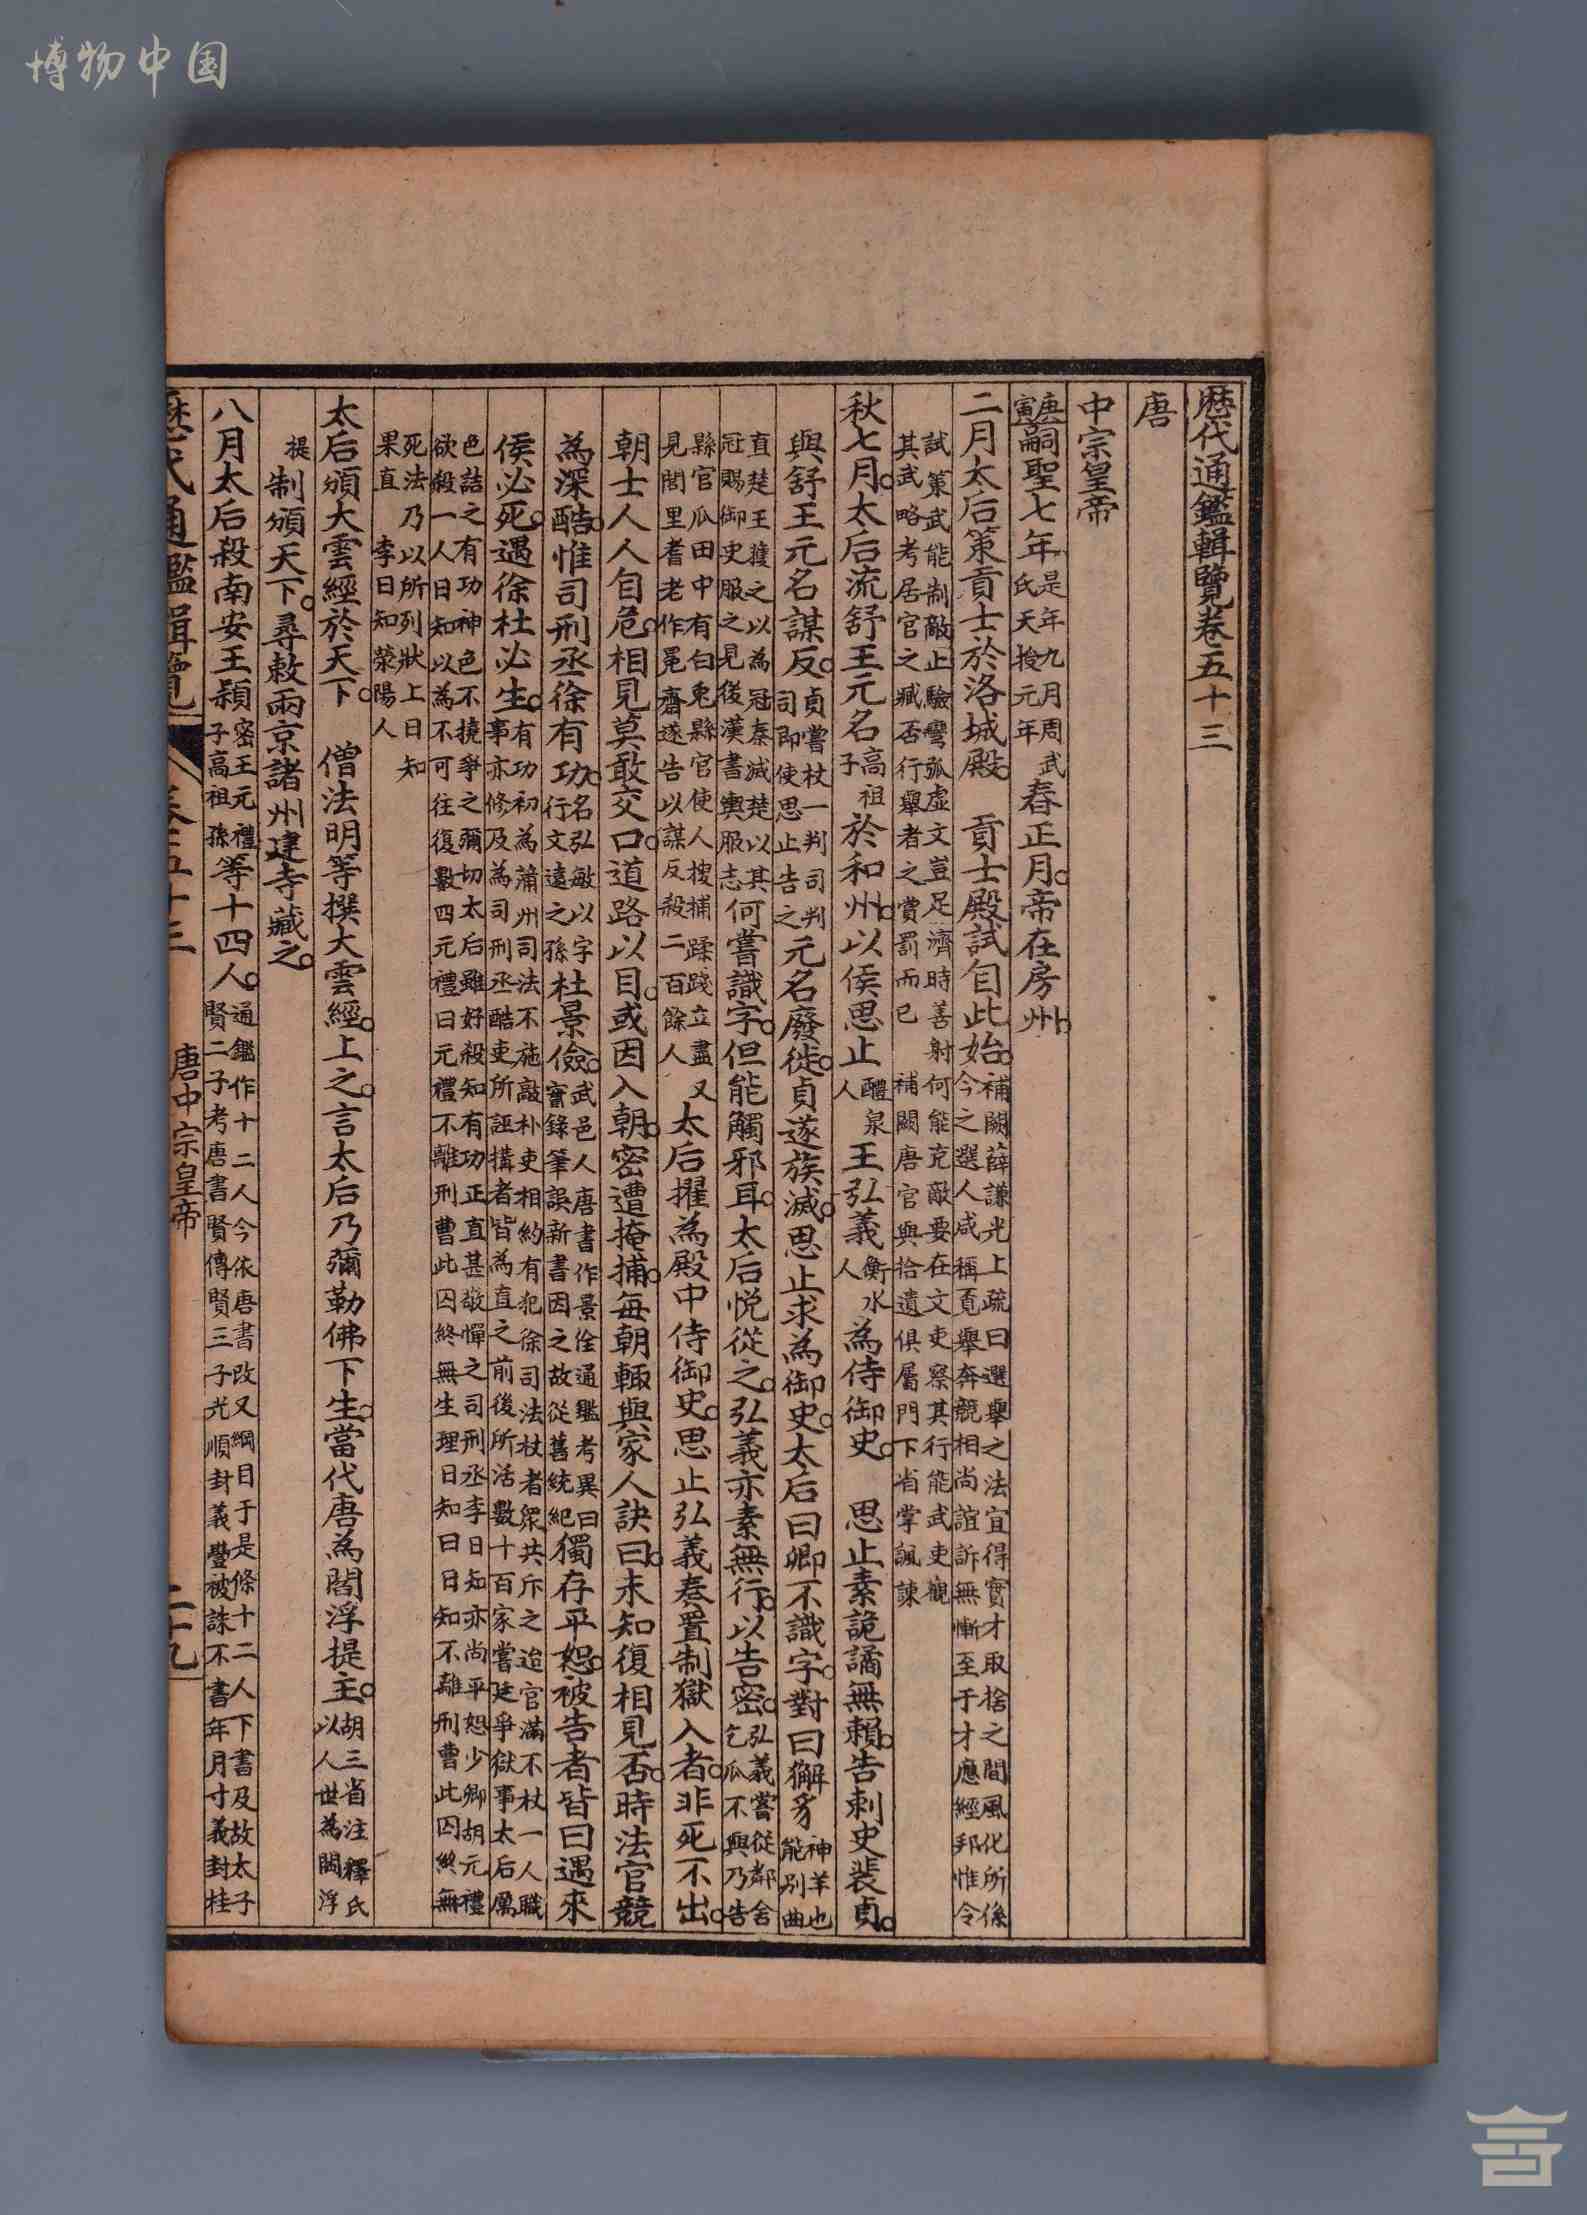 博物中国
歷代通鑑輯覽卷五十三
唐
中宗皇帝
庚寅嗣聖七年是年九月周武氏天授元年春正月帝在房州
二月太后策貢士於洛城殿 貢士殿試自此始補闕薛謙光上疏曰選舉之法宜得實才取捨之間風化所係今之選人咸稱覓舉奔競相尚諠訴無慚至于才應經邦惟令
試策武能制敵止驗彎弧虛文豈足濟時善射何能克敵要在文吏察其行能武吏觀其武略考居官之臧否行舉者之賞罰而已 補闕唐官與拾遺俱屬門下省掌諷諫
秋七月太后流舒王元名高祖子於和州以侯思止醴泉人王弘義衡水人為侍御史 思止素詭譎無賴告刺史裴貞
與舒王元名謀反貞嘗杖一判司判司即使思止告之元名廢徙貞遂族滅思止求為御史太后曰卿不識字對曰獬豸神羊也能別曲
直楚王獲之以為冠秦滅楚以其冠賜御史服之見後漢書輿服志何嘗識字但能觸邪耳太后悅從之弘義亦素無行以告密弘義嘗從鄰舍乞瓜不與乃告
縣官瓜田中有白兔縣官使人搜捕蹂踐立盡又見閭里耆老作邑齋遂告以謀反殺二百餘人太后擢為殿中侍御史思止弘義奏置制獄入者非死不出
朝士人人自危相見莫敢交口道路以目或因入朝密遭掩捕每朝輒與家人訣曰未知復相見否時法官競
為深酷惟司刑丞徐有功名弘敏以字行文遠之孫杜景儉武邑人唐書作景佺通鑑考異曰實錄筆誤新書因之故從舊統紀獨存平恕被告者皆曰遇來
侯必死遇徐杜必生有功初為蒲州司法不施敲朴吏相約有犯徐司法杖者眾共斥之迨官滿不杖一人職事亦修及為司刑丞酷吏所誣搆者皆為直之前後所活數十百家嘗廷爭獄事太后厲
色詰之有功神色不撓爭之彌切太后雖好殺知有功正直甚敬憚之司刑丞李日知亦尚平恕少卿胡元禮欲殺一人日知以為不可往復數四元禮曰元禮不離刑曹此囚終無生理日知曰日知不離刑曹此囚終無
死法乃以所列狀上日知果直 李日知滎陽人
太后頒大雲經於天下 僧法明等撰大雲經上之言太后乃彌勒佛下生當代唐為閻浮提主胡三省注釋氏以人世為閻浮
提制頒天下尋敕兩京諸州建寺藏之
八月太后殺南安王穎密王元禮子高祖孫等十四人通鑑作十二人今依唐書改又綱目于是條十二人下書及故太子賢二子考唐書賢傳賢三子光順封義豐被誅不書年月守義封桂
歷代通鑑輯覽 卷五十三 唐中宗皇帝 二十九